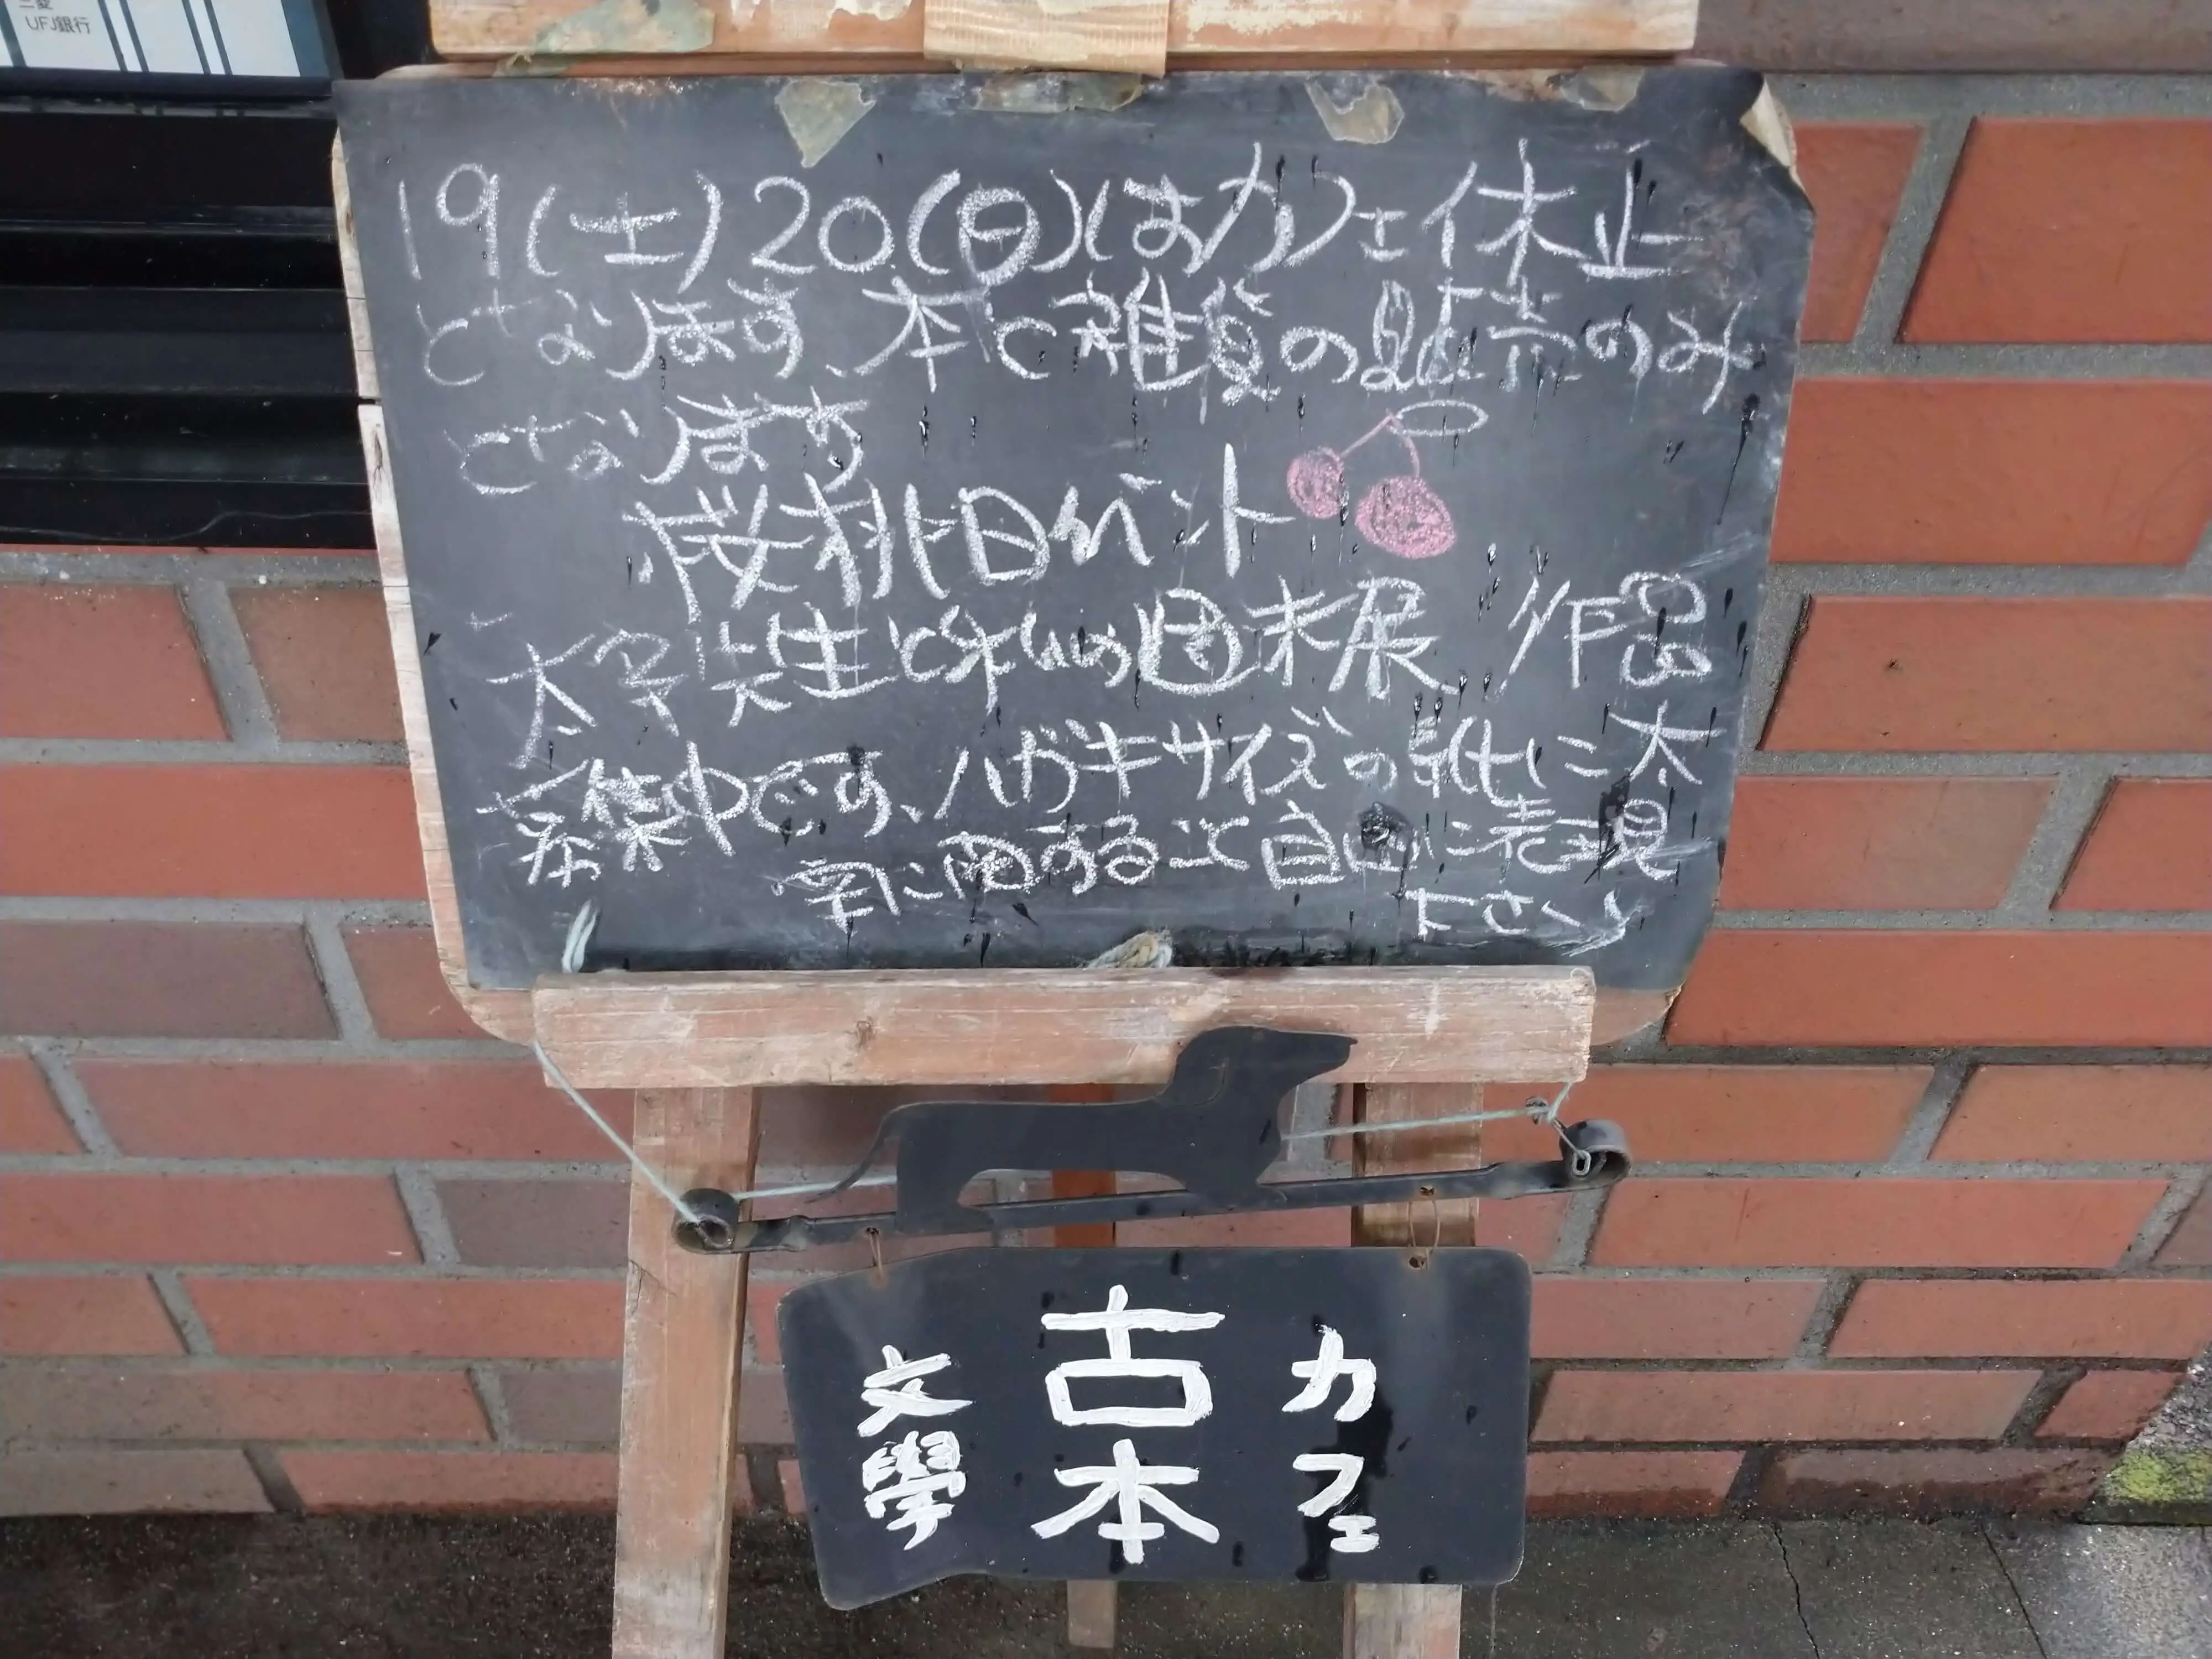 三菱
UFJ銀行
19(土)20(日)はカフェ休止
となります、本と雑貨の販売のみ
となります
桜桃忌イベント
太宰先生と私の週末展 作品
募集中です、ハガキサイズの紙に太
宰に関すること自由に表現
下さい
文學
古本
カフェ